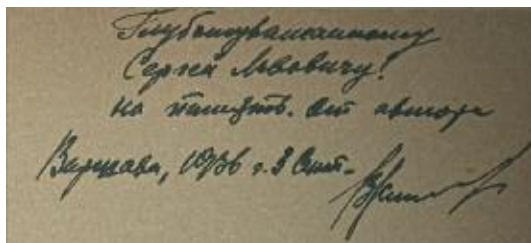 Глубокоуважаемому
Сергею Львовичу!
на память. От автора
Варшава, 1936 г. 3 Сент.